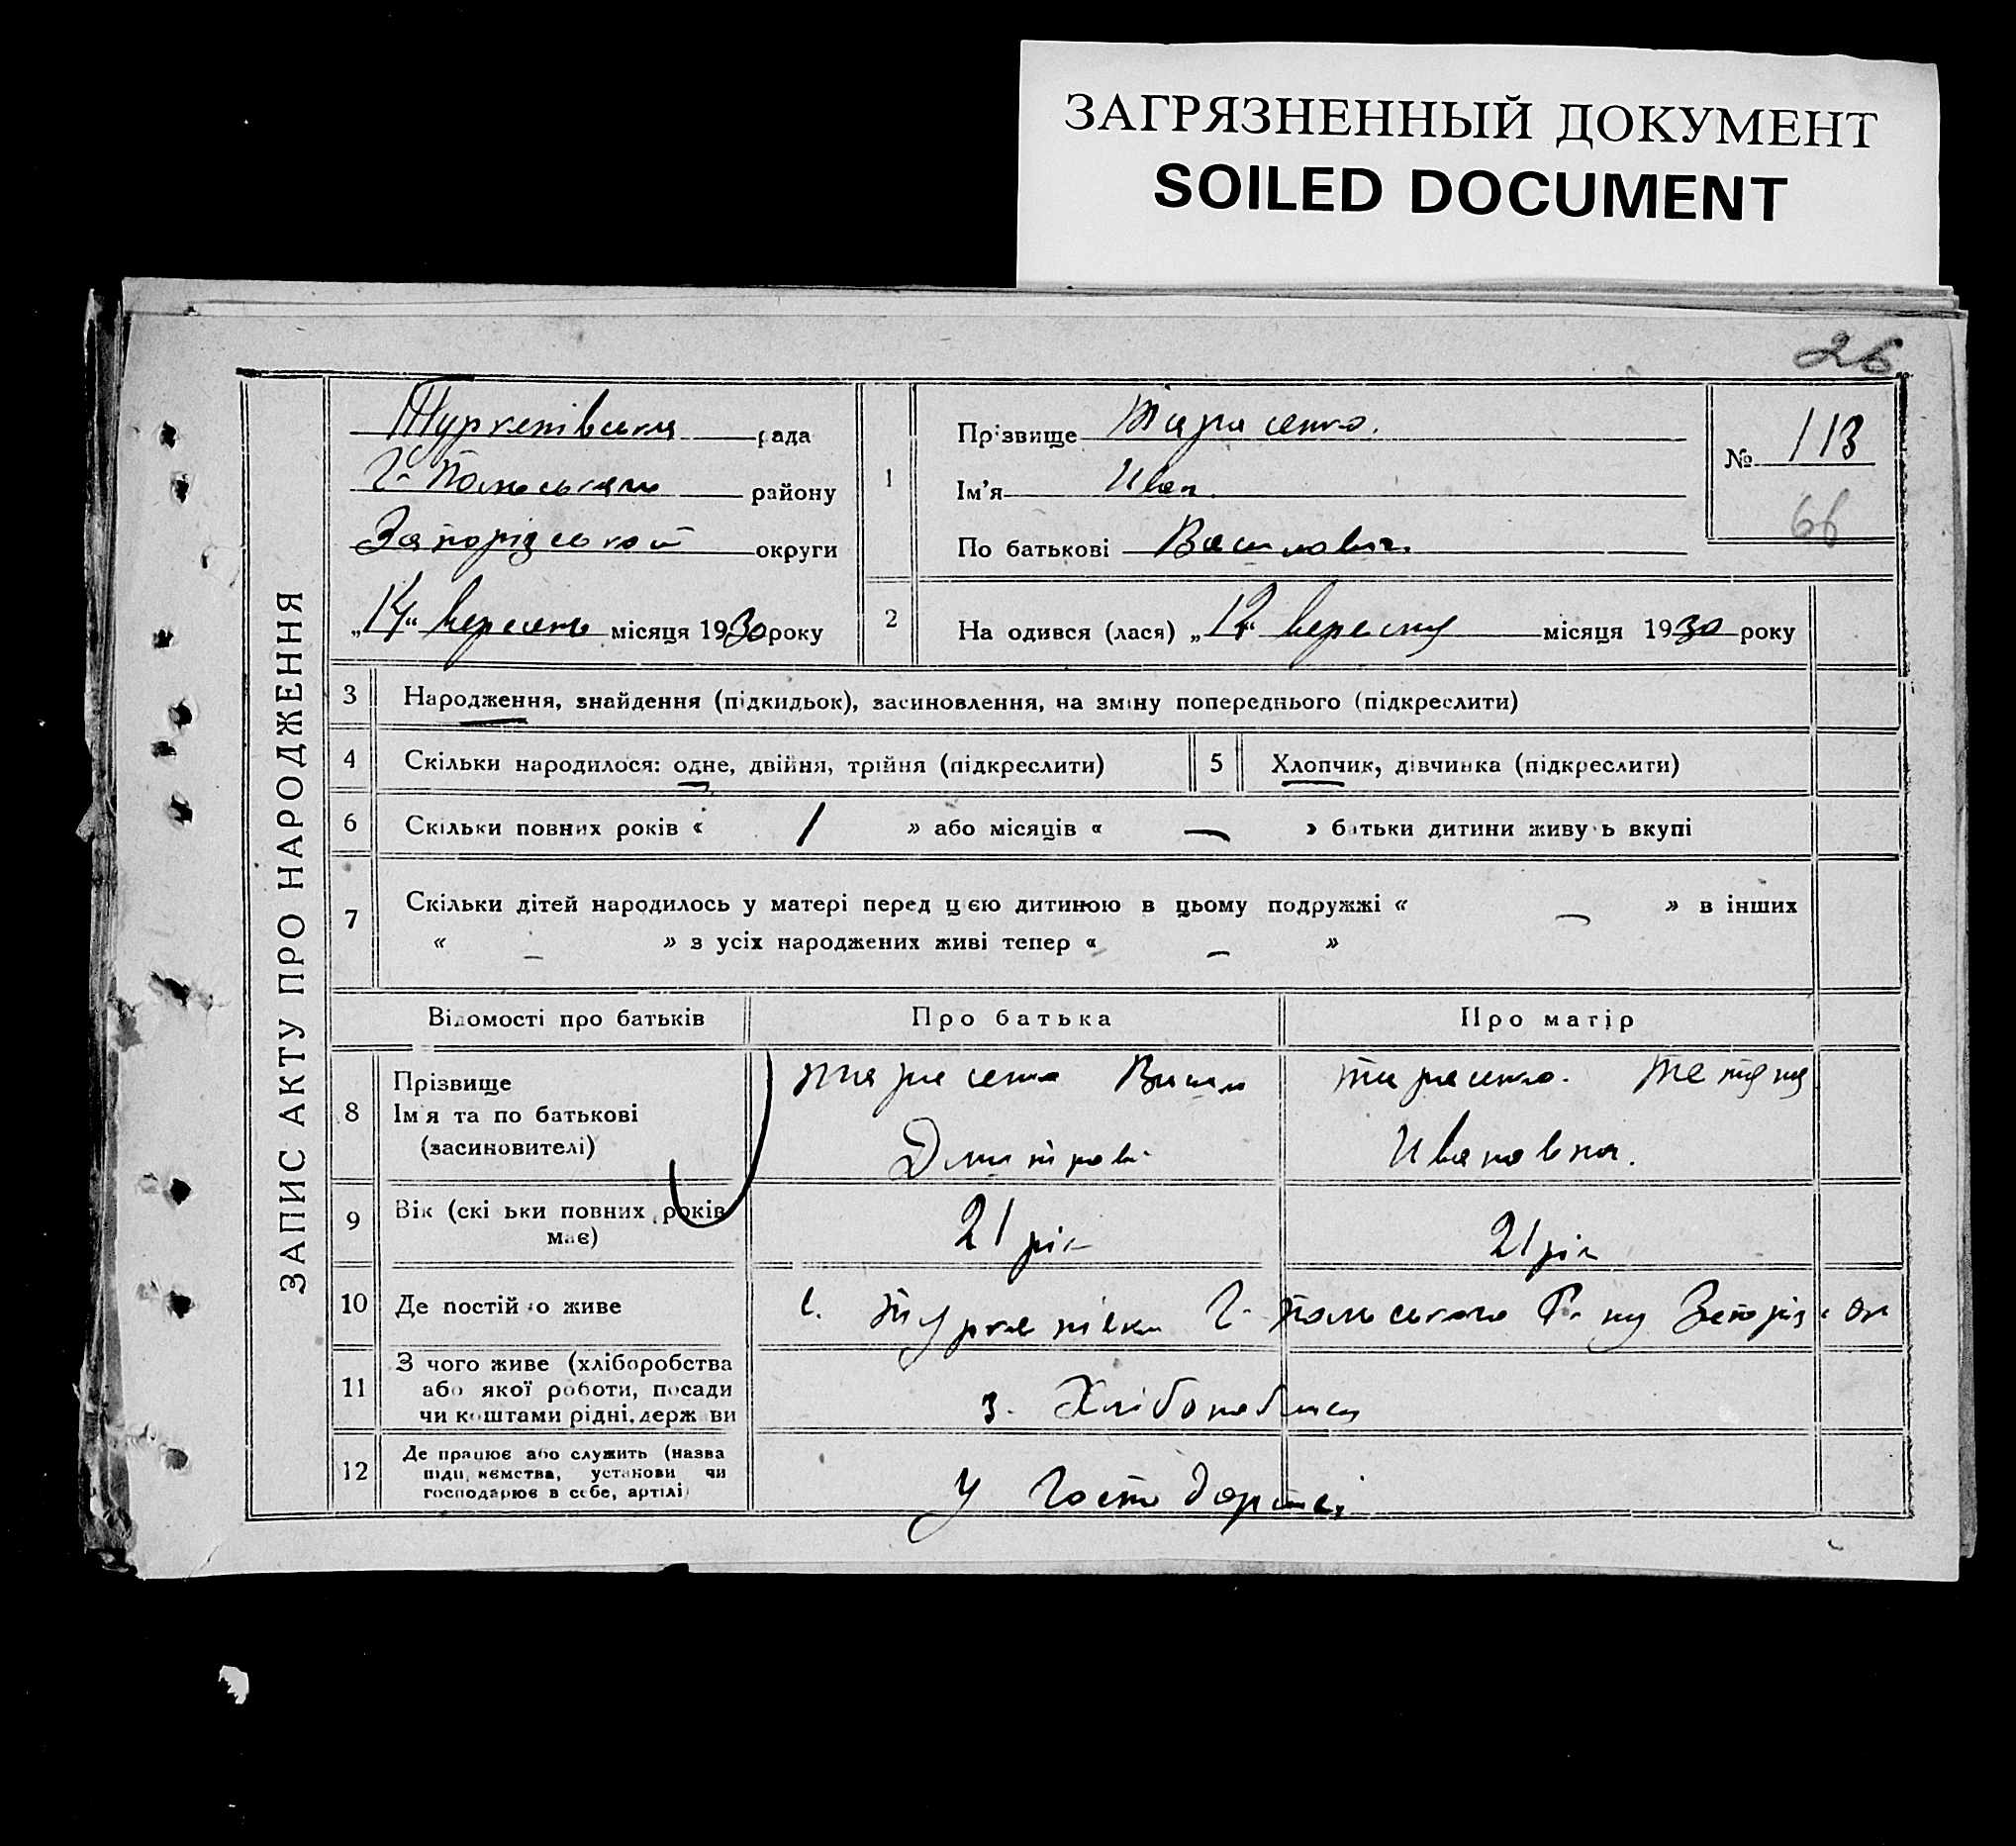 ЗАГРЯЗНЕННЫЙ ДОКУМЕНТ
SOILED DOCUMENT
26
ЗАПИС АКТУ ПРО НАРОДЖЕННЯ
Туркенівська рада
Г-Польського району
Запорізької округи
„14" вересня місяця 1930 року
1
Прізвище Тарасенко.
Ім'я Иван.
По батькові Василович.
№ 113
66
2 На одився (лася) „12" вересня місяця 1930 року
3 Народження, знайдення (підкидьок), засиновлення, на зміну попереднього (підкреслити)
4 Скільки народилося: одне, двійня, трійня (підкреслити) 5 Хлопчик, дівчинка (підкреслити)
6 Скільки повних років « 1 » або місяців « — » батьки дитини живуть вкупі
7 Скільки дітей народилось у матері перед цією дитиною в цьому подружжі « — » в інших
« – » з усіх народжених живі тепер « – »
Відомості про батьків Про батька Про матір
8 Прізвище
Ім'я та по батькові
(засиновителі)
Тарасенко Василь
Дмитрові
Тарасенко. Тетяна
Ивановна.
9 Вік (скільки повних років
має)
21 рік 21 рік
10 Де постійно живе с. Туркенівка Г-Польського Р-ну Запоріз. ок
11 З чого живе (хліборобства
або якої роботи, посади
чи коштами рідні, держави
з. Хлібопабства
12 Де працює або служить (назва
підприємства, установи чи
господарює в себе, артілі)
У Господарстві